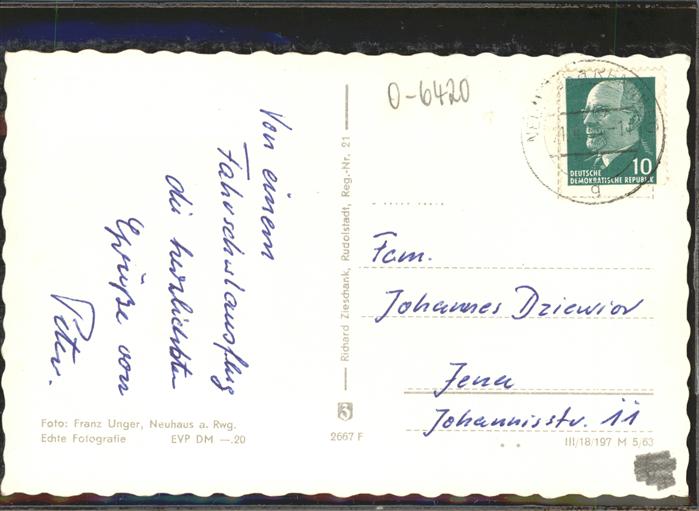 O-6420
10
DEUTSCHE
DEMOKRATISCHE REPUBLIK
g
Von einem
Fahrschulausflug
die herzlichsten
Grüße von
Peter.
Richard Zieschank, Rudolstadt, Reg.-Nr. 21
Fam.
Johannes Dziewior
Jena
Johannisstr. 11
Foto: Franz Unger, Neuhaus a. Rwg.
Echte Fotografie EVP DM —.20
3
2667 F
III/18/197 M 5/63